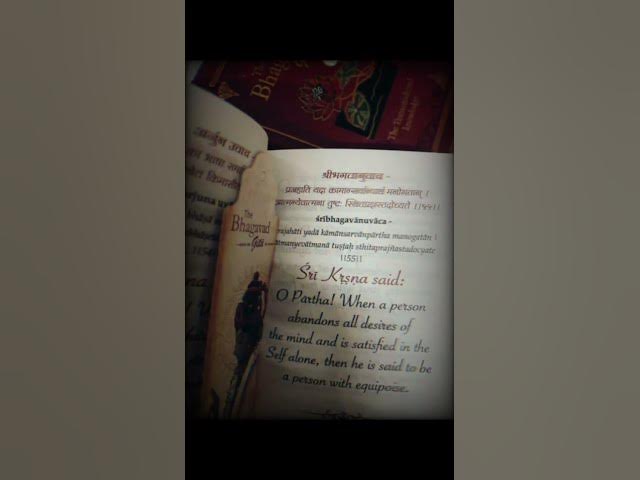 The
Bhagavad
The Transcendental
Knowledge
अर्जुन उवाच
The
Bhagavad
Gītā
श्रीभगवानुवाच -
प्रजहाति यदा कामान्सर्वान्पार्थ मनोगतान् ।
आत्मन्येवात्मना तुष्टः स्थितप्रज्ञस्तदोच्यते ।।५५।।
śrībhagavānuvāca -
prajahāti yadā kāmānsarvānpārtha manogatān ।
ātmanyevātmanā tuṣṭaḥ sthitaprajñastadocyate
।।55।।
Śrī Kṛṣṇa said:
O Pārtha! When a person
abandons all desires of
the mind and is satisfied in the
Self alone, then he is said to be
a person with equipoise.